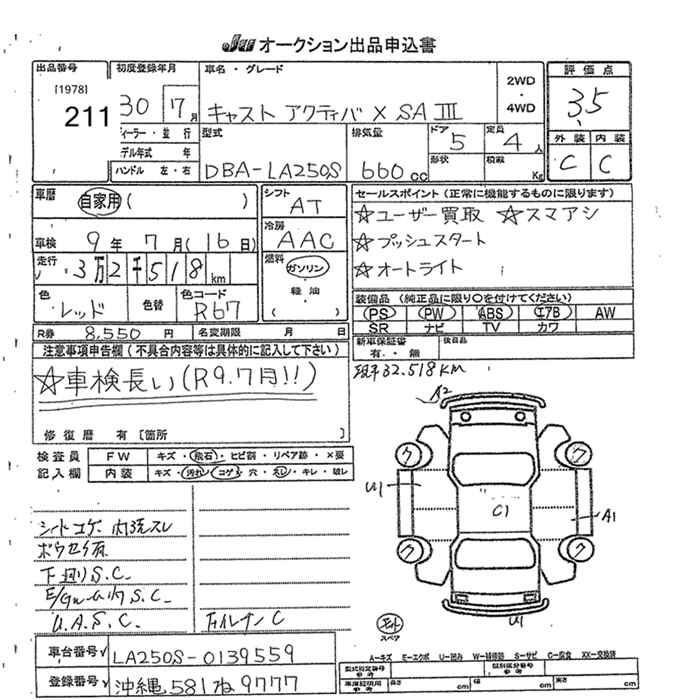 JU オークション出品申込書
出品番号
[1978]
211
初度登録年月
30 7月
ディーラー・並行
モデル年式 年
ハンドル 左・右
車名・グレード
キャスト アクティバ X SA III
2WD
・
4WD
評価点
3.5
外装 内装
C C
型式
DBA-LA250S
排気量
660cc
ドア
5
形状
定員
4人
積載
Kg
車歴
自家用( )
車検 9年 7月(16日)
走行 3万2千518km
色
レッド
色替
色コード
R67
R券 8,550円 名変期限 月 日
シフト
AT
冷房
AAC
燃料
ガソリン
軽油
( )
セールスポイント(正常に機能するものに限ります)
☆ユーザー買取 ☆スマアシ
☆プッシュスタート
☆オートライト
装備品(純正品に限り○を付けてください)
PS PW ABS エアB AW
SR ナビ TV カワ
新車保証書
有・無
後日品
注意事項申告欄(不具合内容等は具体的に記入して下さい)
☆車検長い(R9.7月!!)
修復歴 有[箇所 ]
現車32.518KM
検査員
記入欄
FW キズ・飛石・ヒビ割・リペア跡・×要
内装 キズ・汚れ・コゲ・穴・スレ・キレ・破レ
シートコゲ 内張スレ
ボウセイ有
下廻りS.C
S.C
U.A.S.C
A2
ク ク
U1
C1
A1
ク ク
U1
スペア
A-キズ E-エクボ U-凹み W-補修跡 S-サビ C-腐食 XX-交換済
車台番号 LA250S-0139559
登録番号 沖縄 581 ね 9777
型式指定番号
参考
類別区分番号
参考
車庫証明用
参考
長さ cm
幅 cm
高さ cm